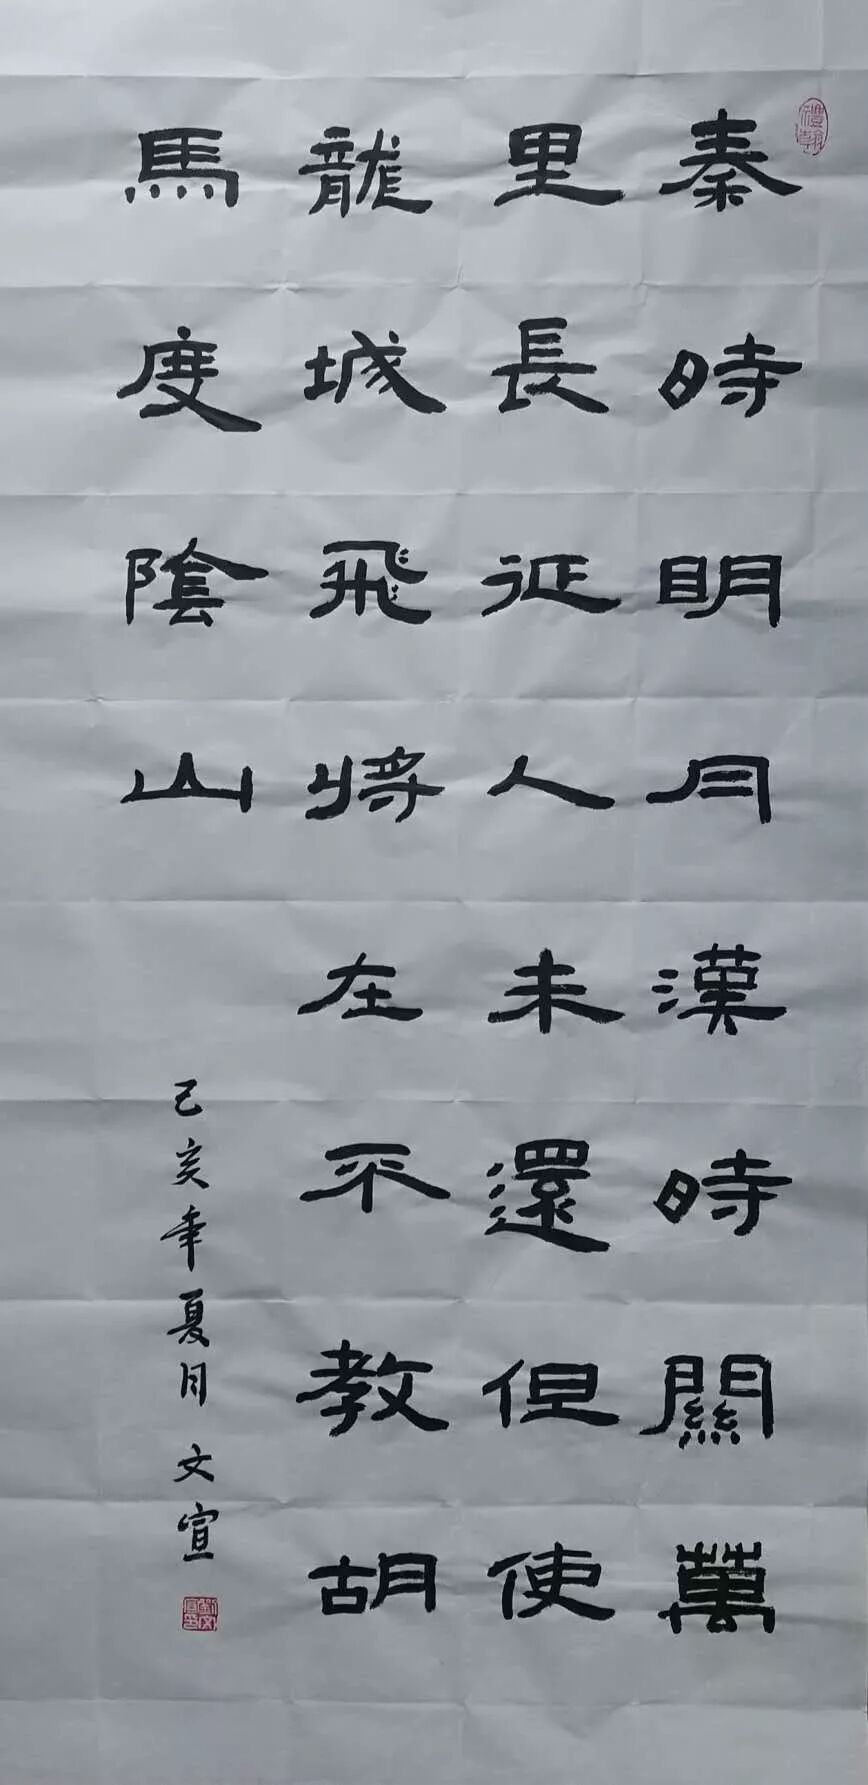 秦時明月漢時關萬
里長征人未還但使
龍城飛將在不教胡
馬度陰山
己亥年夏月文宣